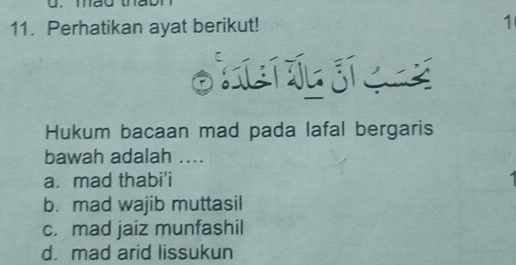 11. Perhatikan ayat berikut!
يَحْسَبُ أَنَّ مَالَهُۥٓ أَخْلَدَهُۥ ۚ ٣
Hukum bacaan mad pada lafal bergaris
bawah adalah ....
a. mad thabi'i
b. mad wajib muttasil
c. mad jaiz munfashil
d. mad arid lissukun